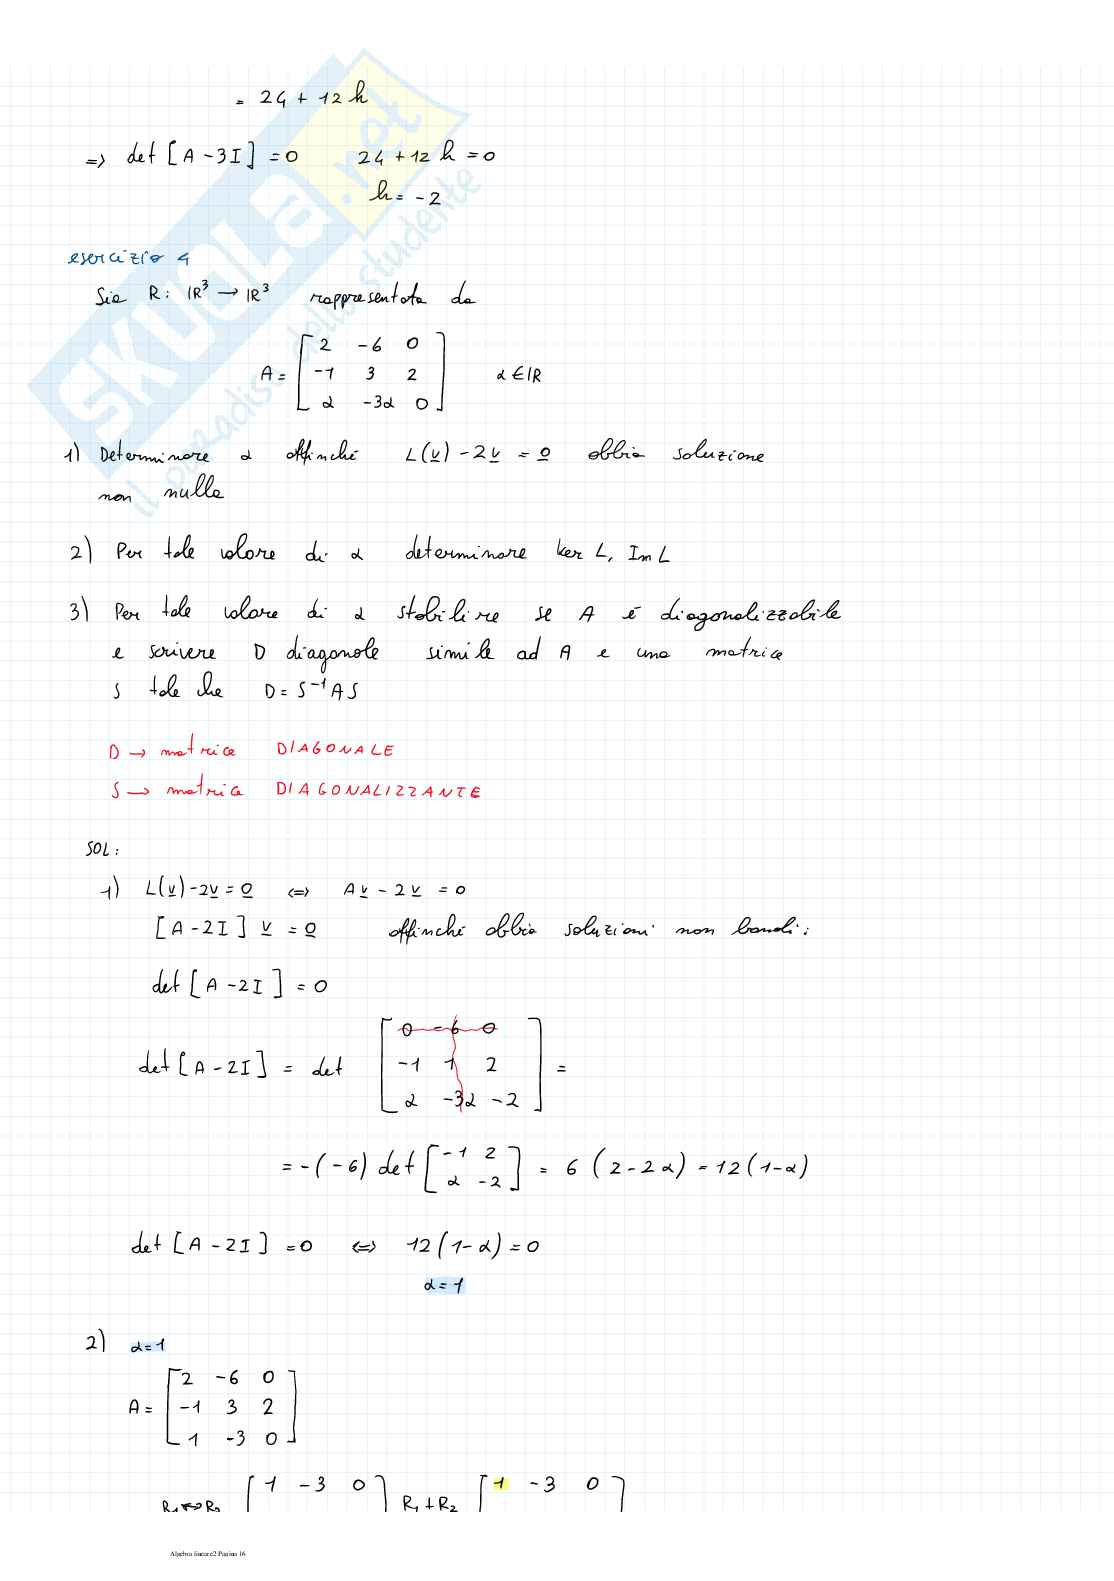 = 24 + 12 h
=> det [A - 3I] = 0 24 + 12 h = 0
h = - 2
esercizio 4
Sia R: IR³ → IR³ rappresentata da
A = [2 -6 0
-1 3 2
α -3α 0] α ∈ IR
1) Determinare α affinché L(v) - 2v = 0 abbia soluzione
non nulla
2) Per tale valore di α determinare ker L, Im L
3) Per tale valore di α stabilire se A è diagonalizzabile
e scrivere D diagonale simile ad A e una matrice
S tale che D = S⁻¹AS
D → matrice DIAGONALE
S → matrice DIAGONALIZZANTE
SOL:
1) L(v) - 2v = 0 <=> Av - 2v = 0
[A - 2I] v = 0 affinché abbia soluzioni non banali:
det [A - 2I] = 0
det [A - 2I] = det [0 -6 0
-1 1 2
α -3α -2] =
= -(-6) det [-1 2
α -2] = 6 (2 - 2α) = 12 (1 - α)
det [A - 2I] = 0 <=> 12 (1 - α) = 0
α = 1
2) α = 1
A = [2 -6 0
-1 3 2
1 -3 0]
[1 -3 0] R₁ + R₂ [1 -3 0]
SKUOLA.net
il paradiso dello studente
Algebra lineare2 Pagina 16